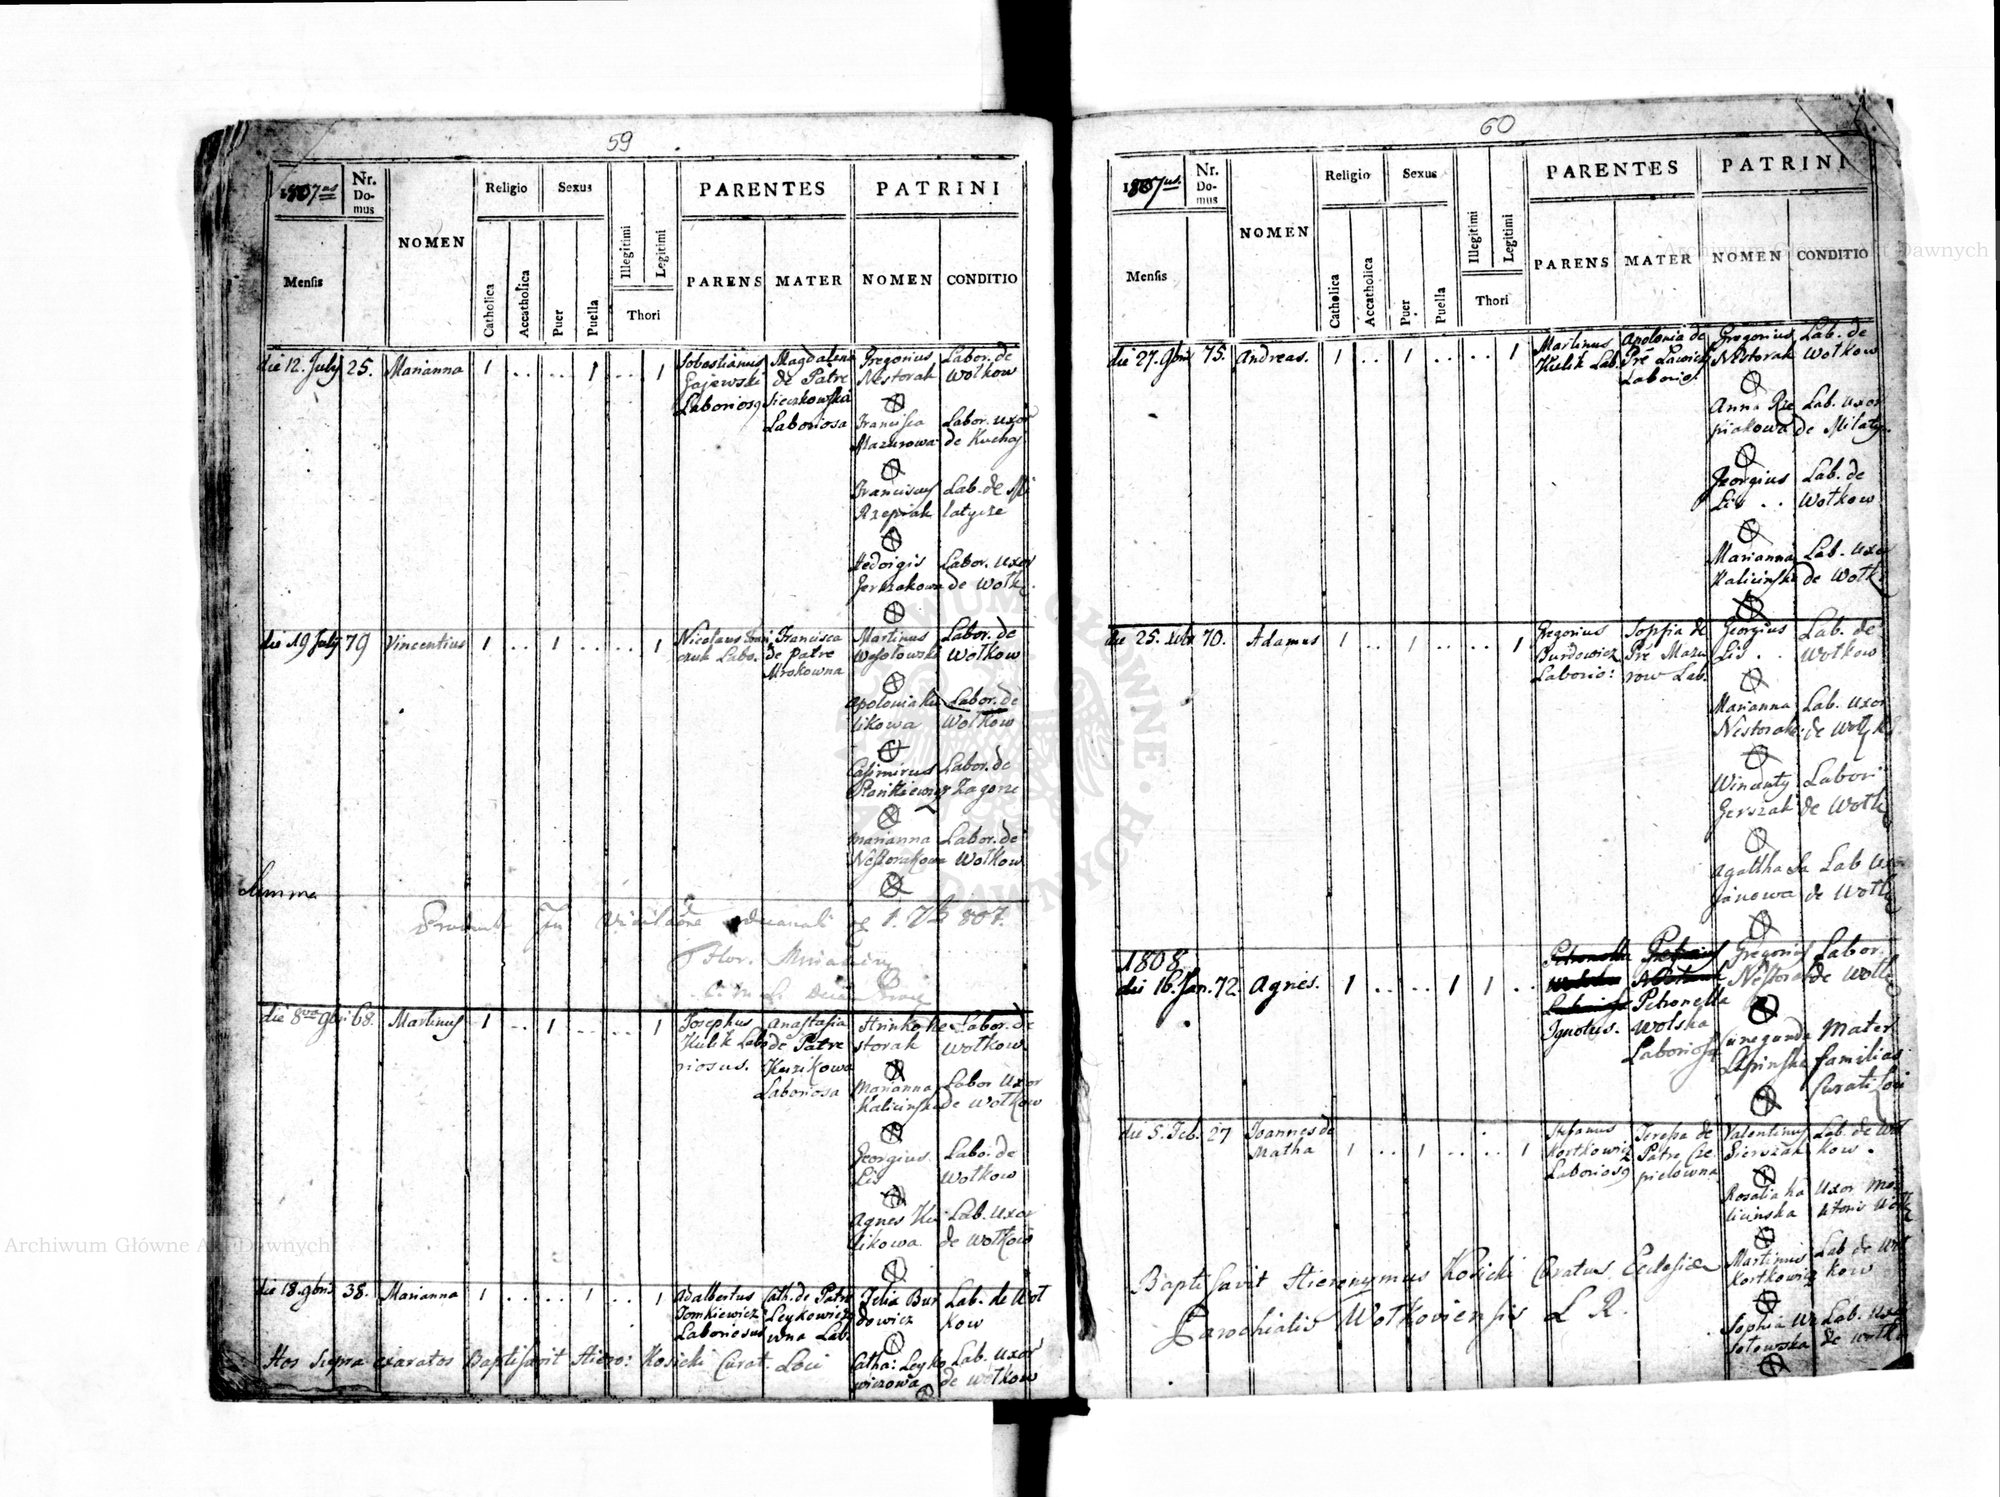 59
1807us
Nr. Domus
NOMEN
Religio
Sexus
Illegitimi
Legitimi
PARENTES
PATRINI
Mensis
Catholica
Accatholica
Puer
Puella
Thori
PARENS
MATER
NOMEN
CONDITIO
die 12. July 25. Marianna 1 .. .. 1 .. 1
Gajewski
Laborios9
Magdalena
de Patre
Sieczkowska
Laboriosa
Gregorius Labor. de
Nestorak Wołkow
Francisca Labor. uxor
Mazurowa de
Franciscus Lab. de Mi
Rzepiak latycze
Hedvigis Labor. uxor
Gerszakowa de Wołk.
die 19 July 79 Vincentius 1 .. 1 .. .. 1
Nicolaus
czuk Labo.
Francisca
de patre
Mrokowna
Martinus Labor. de
Wesołowski Wołkow
Apolonia Ku Labor. de
likowa Wołkow
Casimirus Labor. de
Stankiewicz Zagorze
Marianna Labor. de
Nestorakowa Wołkow
Summa
die 8va 9bri 68. Martinus 1 .. 1 .. .. 1
Josephus
Kulik Labo
riosus.
Anastasia
de Patre
Laboriosa
Hrinko Ne Labor. de
storak Wołkow
Marianna Labor Uxor
Kalicinska de Wołkow
Georgius Labo. de
Lis Wołkow
Agnes Ku Lab. Uxor
likowa de Wołkow
die 18. 9bris 38. Marianna 1 .. .. 1 .. 1
Adalbertus
Tomkiewicz
Laboriosus
Cath. de Patre
Leykowicz
wna Lab.
Bur Lab. de Woł
dowicz kow
Catha: Leyko Lab. uxor
wiczowa de Wołkow
Hos supra exaratos Baptisavit Hiero: Kosicki Curat. Loci
60
1807us.
Nr. Domus
NOMEN
Religio
Sexus
Illegitimi
Legitimi
PARENTES
PATRINI
Mensis
Catholica
Accatholica
Puer
Puella
Thori
PARENS
MATER
NOMEN
CONDITIO
die 27. 9bris 75. Andreas. 1 .. 1 .. .. 1
Martinus
Kulik Lab.
Apolonia de
Laborio.
Gregorius Lab. de
Nestorak Wołkow
Anna Rze Lab. uxor
piakowa de Milaty.
Georgius Lab. de
Lis .. Wołkow
Marianna Lab. Uxor
Kalicinska de Wołk.
die 25. 70. Adamus 1 .. 1 .. .. 1
Gregorius
Burdowicz
Laborio:
Sophia de
Pre Mazu
row Lab.
Georgius Lab. de
Lis .. Wołkow
Marianna Lab. uxor
Nestorak. de
Labori
Gerszak de Wołk
Agattha Sa Lab Uxor
janowa de Wołk
1808
die 16. Jan. 72. Agnes. 1 .. .. 1 1 ..
Ignotus.
Petronella
Wolska
Laboriosa
Gregorius Labor.
Nestorak de Wołk
Cunegunda Mater
Lapinska familias
Curati Loci
die 5. Feb. 27 Joannes de
Matha 1 .. 1 .. .. 1
Stefanus
Kortkowicz
Laborios9
Teresa de
Patre Cze
pielowna
Valentinus Lab. de Woł
Gierszak kow.
Rosalia Ka Uxor
licinska
Martinus Lab de Woł
Kortkowicz kow
Sophia We Lab. uxor
sołowska de Wołk
Baptisavit Hieronymus Kosicki Curatus Eclesiæ
Parochialis Wołkoviensis L R.
Archiwum Główne Akt Dawnych
Archiwum Główne Akt Dawnych
ARCHIWUM GŁÓWNE AKT DAWNYCH